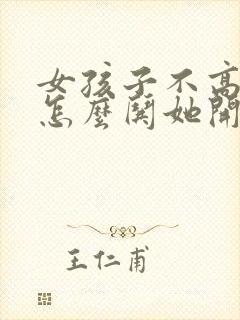 女孩子不高
怎麼鬨她開
王仁甫